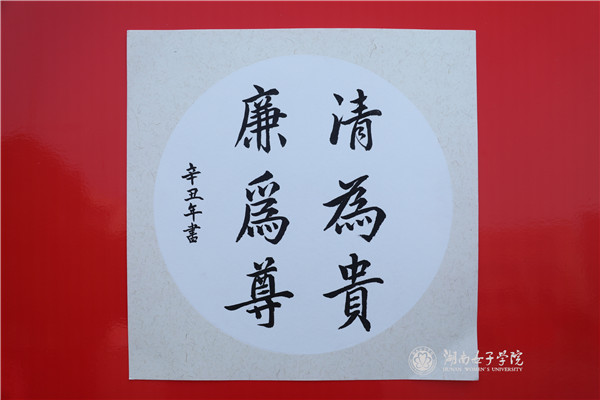 清為貴
廉爲尊
辛丑年書
湖南女子学院
HUNAN WOMEN'S UNIVERSITY